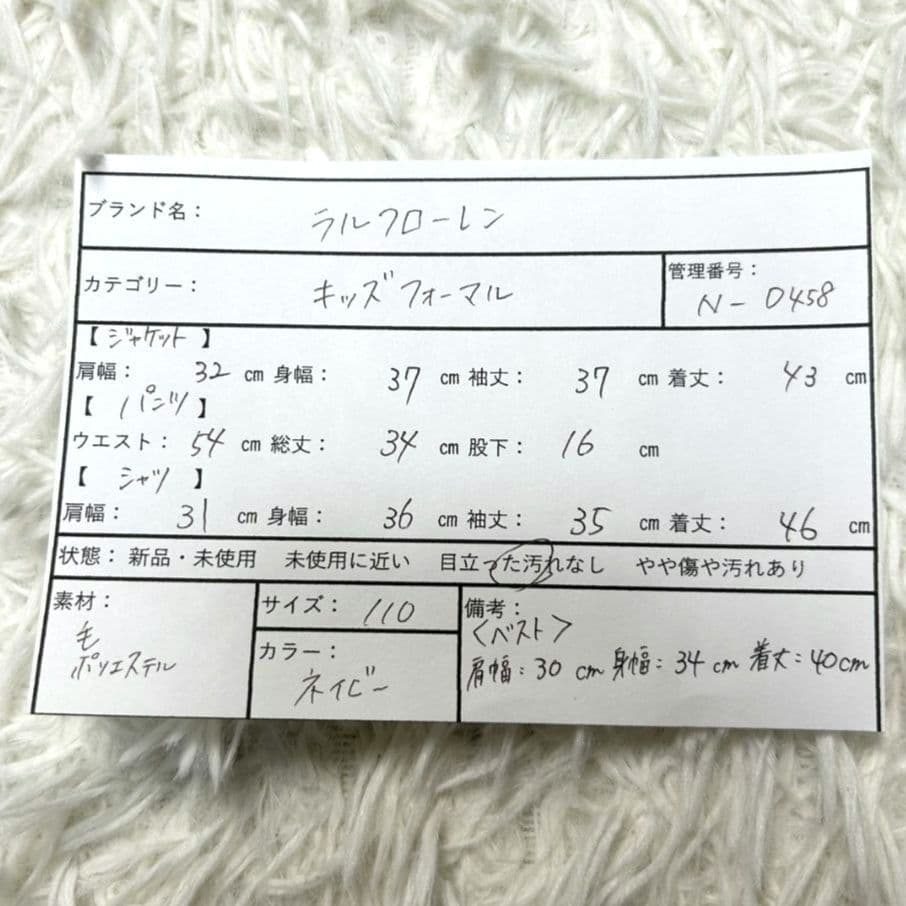 ブランド名： ラルフローレン
カテゴリー： キッズフォーマル 管理番号： N-0458
【 ジャケット 】
肩幅： 32 cm 身幅： 37 cm 袖丈： 37 cm 着丈： 43 cm
【 パンツ 】
ウエスト： 54 cm 総丈： 34 cm 股下： 16 cm
【 シャツ 】
肩幅： 31 cm 身幅： 36 cm 袖丈： 35 cm 着丈： 46 cm
状態：新品・未使用 未使用に近い 目立った汚れなし やや傷や汚れあり
素材： サイズ： 110 備考：
毛 〈ベスト〉
ポリエステル カラー： 肩幅：30 cm 身幅：34 cm 着丈：40cm
ネイビー